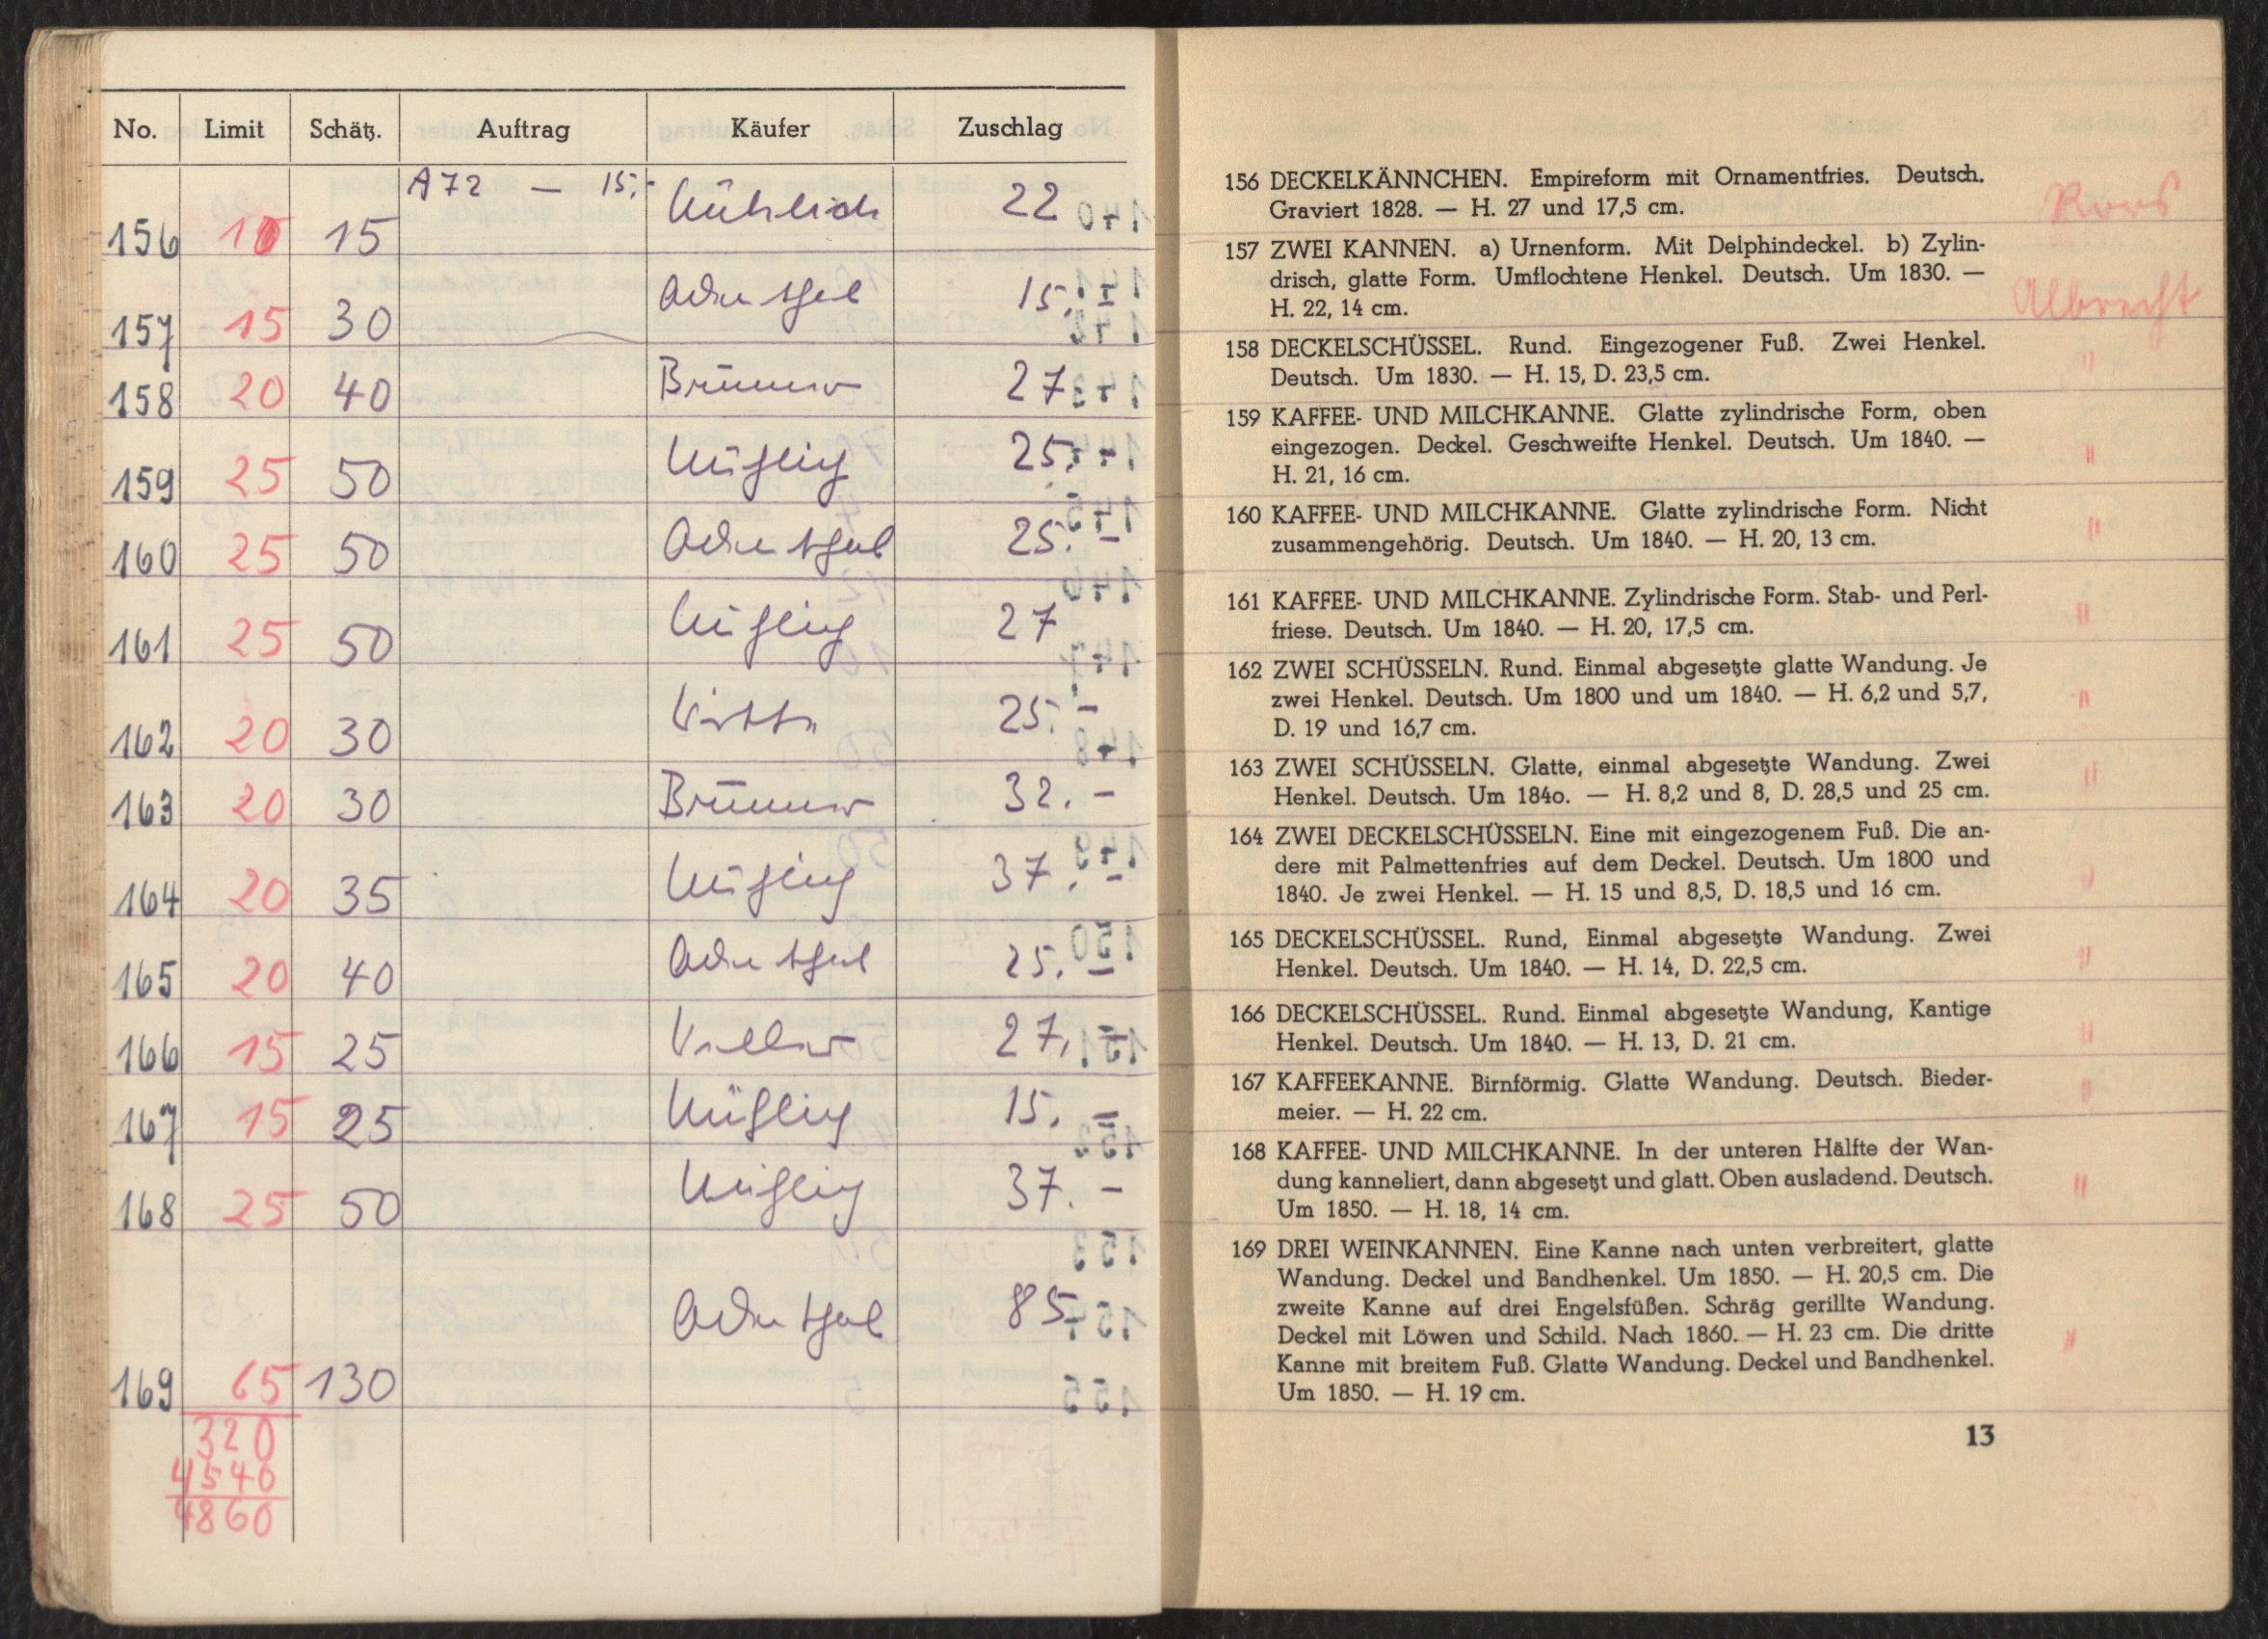 No. Limit Schätz. Auftrag Käufer Zuschlag
A 72 — 15.-
156 10 15 22
157 15 30 15.-
158 20 40 27
159 25 50 25.-
160 25 50 25.-
161 25 50 27
162 20 30 25.-
163 20 30 32.-
164 20 35 37.-
165 20 40 25.-
166 15 25 27.-
167 15 25 15.-
168 25 50 37.-
169 65 130 85
320
4540
4860
156 DECKELKÄNNCHEN. Empireform mit Ornamentfries. Deutsch.
Graviert 1828. — H. 27 und 17,5 cm.
157 ZWEI KANNEN. a) Urnenform. Mit Delphindeckel. b) Zylin-
drisch, glatte Form. Umflochtene Henkel. Deutsch. Um 1830. —
H. 22, 14 cm.
Albrecht
158 DECKELSCHÜSSEL. Rund. Eingezogener Fuß. Zwei Henkel. "
Deutsch. Um 1830. — H. 15, D. 23,5 cm.
159 KAFFEE- UND MILCHKANNE. Glatte zylindrische Form, oben
eingezogen. Deckel. Geschweifte Henkel. Deutsch. Um 1840. — "
H. 21, 16 cm.
160 KAFFEE- UND MILCHKANNE. Glatte zylindrische Form. Nicht "
zusammengehörig. Deutsch. Um 1840. — H. 20, 13 cm.
161 KAFFEE- UND MILCHKANNE. Zylindrische Form. Stab- und Perl- "
friese. Deutsch. Um 1840. — H. 20, 17,5 cm.
162 ZWEI SCHÜSSELN. Rund. Einmal abgesetzte glatte Wandung. Je
zwei Henkel. Deutsch. Um 1800 und um 1840. — H. 6,2 und 5,7, "
D. 19 und 16,7 cm.
163 ZWEI SCHÜSSELN. Glatte, einmal abgesetzte Wandung. Zwei "
Henkel. Deutsch. Um 1840. — H. 8,2 und 8, D. 28,5 und 25 cm.
164 ZWEI DECKELSCHÜSSELN. Eine mit eingezogenem Fuß. Die an-
dere mit Palmettenfries auf dem Deckel. Deutsch. Um 1800 und "
1840. Je zwei Henkel. — H. 15 und 8,5, D. 18,5 und 16 cm.
165 DECKELSCHÜSSEL. Rund, Einmal abgesetzte Wandung. Zwei "
Henkel. Deutsch. Um 1840. — H. 14, D. 22,5 cm.
166 DECKELSCHÜSSEL. Rund. Einmal abgesetzte Wandung, Kantige "
Henkel. Deutsch. Um 1840. — H. 13, D. 21 cm.
167 KAFFEEKANNE. Birnförmig. Glatte Wandung. Deutsch. Bieder- "
meier. — H. 22 cm.
168 KAFFEE- UND MILCHKANNE. In der unteren Hälfte der Wan-
dung kanneliert, dann abgesetzt und glatt. Oben ausladend. Deutsch. "
Um 1850. — H. 18, 14 cm.
169 DREI WEINKANNEN. Eine Kanne nach unten verbreitert, glatte
Wandung. Deckel und Bandhenkel. Um 1850. — H. 20,5 cm. Die
zweite Kanne auf drei Engelsfüßen. Schräg gerillte Wandung.
Deckel mit Löwen und Schild. Nach 1860. — H. 23 cm. Die dritte "
Kanne mit breitem Fuß. Glatte Wandung. Deckel und Bandhenkel.
Um 1850. — H. 19 cm.
13